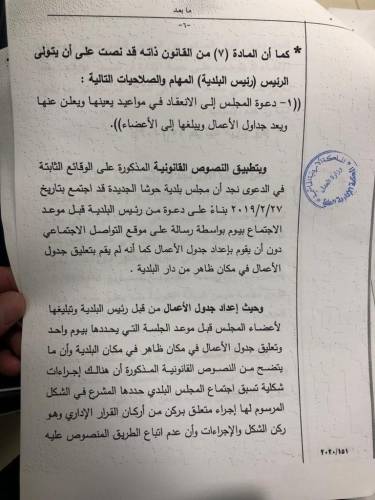 ما بعد
-٦-
* كما أن المادة (٧) من القانون ذاته قد نصت على أن يتولى
الرئيس (رئيس البلدية) المهام والصلاحيات التالية :
((١- دعوة المجلس إلى الانعقاد في مواعيد يعينها ويعلن عنها
ويعد جداول الأعمال ويبلغها إلى الأعضاء)).
وبتطبيق النصوص القانونية المذكورة على الوقائع الثابتة
في الدعوى نجد أن مجلس بلدية حوشا الجديدة قد اجتمع بتاريخ
٢٠١٩/٢/٢٧ بناءً على دعوة من رئيس البلدية قبل موعد
الاجتماع بيوم بواسطة رسالة على موقع التواصل الاجتماعي
دون أن يقوم بإعداد جدول الأعمال كما أنه لم يقم بتعليق جدول
الأعمال في مكان ظاهر من دار البلدية .
وحيث إعداد جدول الأعمال من قبل رئيس البلدية وتبليغها
لأعضاء المجلس قبل موعد الجلسة التي يحددها بيوم واحد
وتعليق جدول الأعمال في مكان ظاهر في مكان البلدية وأن ما
يتضح من النصوص القانونية المذكورة أن هنالك إجراءات
شكلية تسبق اجتماع المجلس البلدي حددها المشرع في الشكل
المرسوم لها إجراء متعلق بركن من أركان القرار الإداري وهو
ركن الشكل والإجراءات وأن عدم اتباع الطريق المنصوص عليه
٢٠٢٠/١٥١